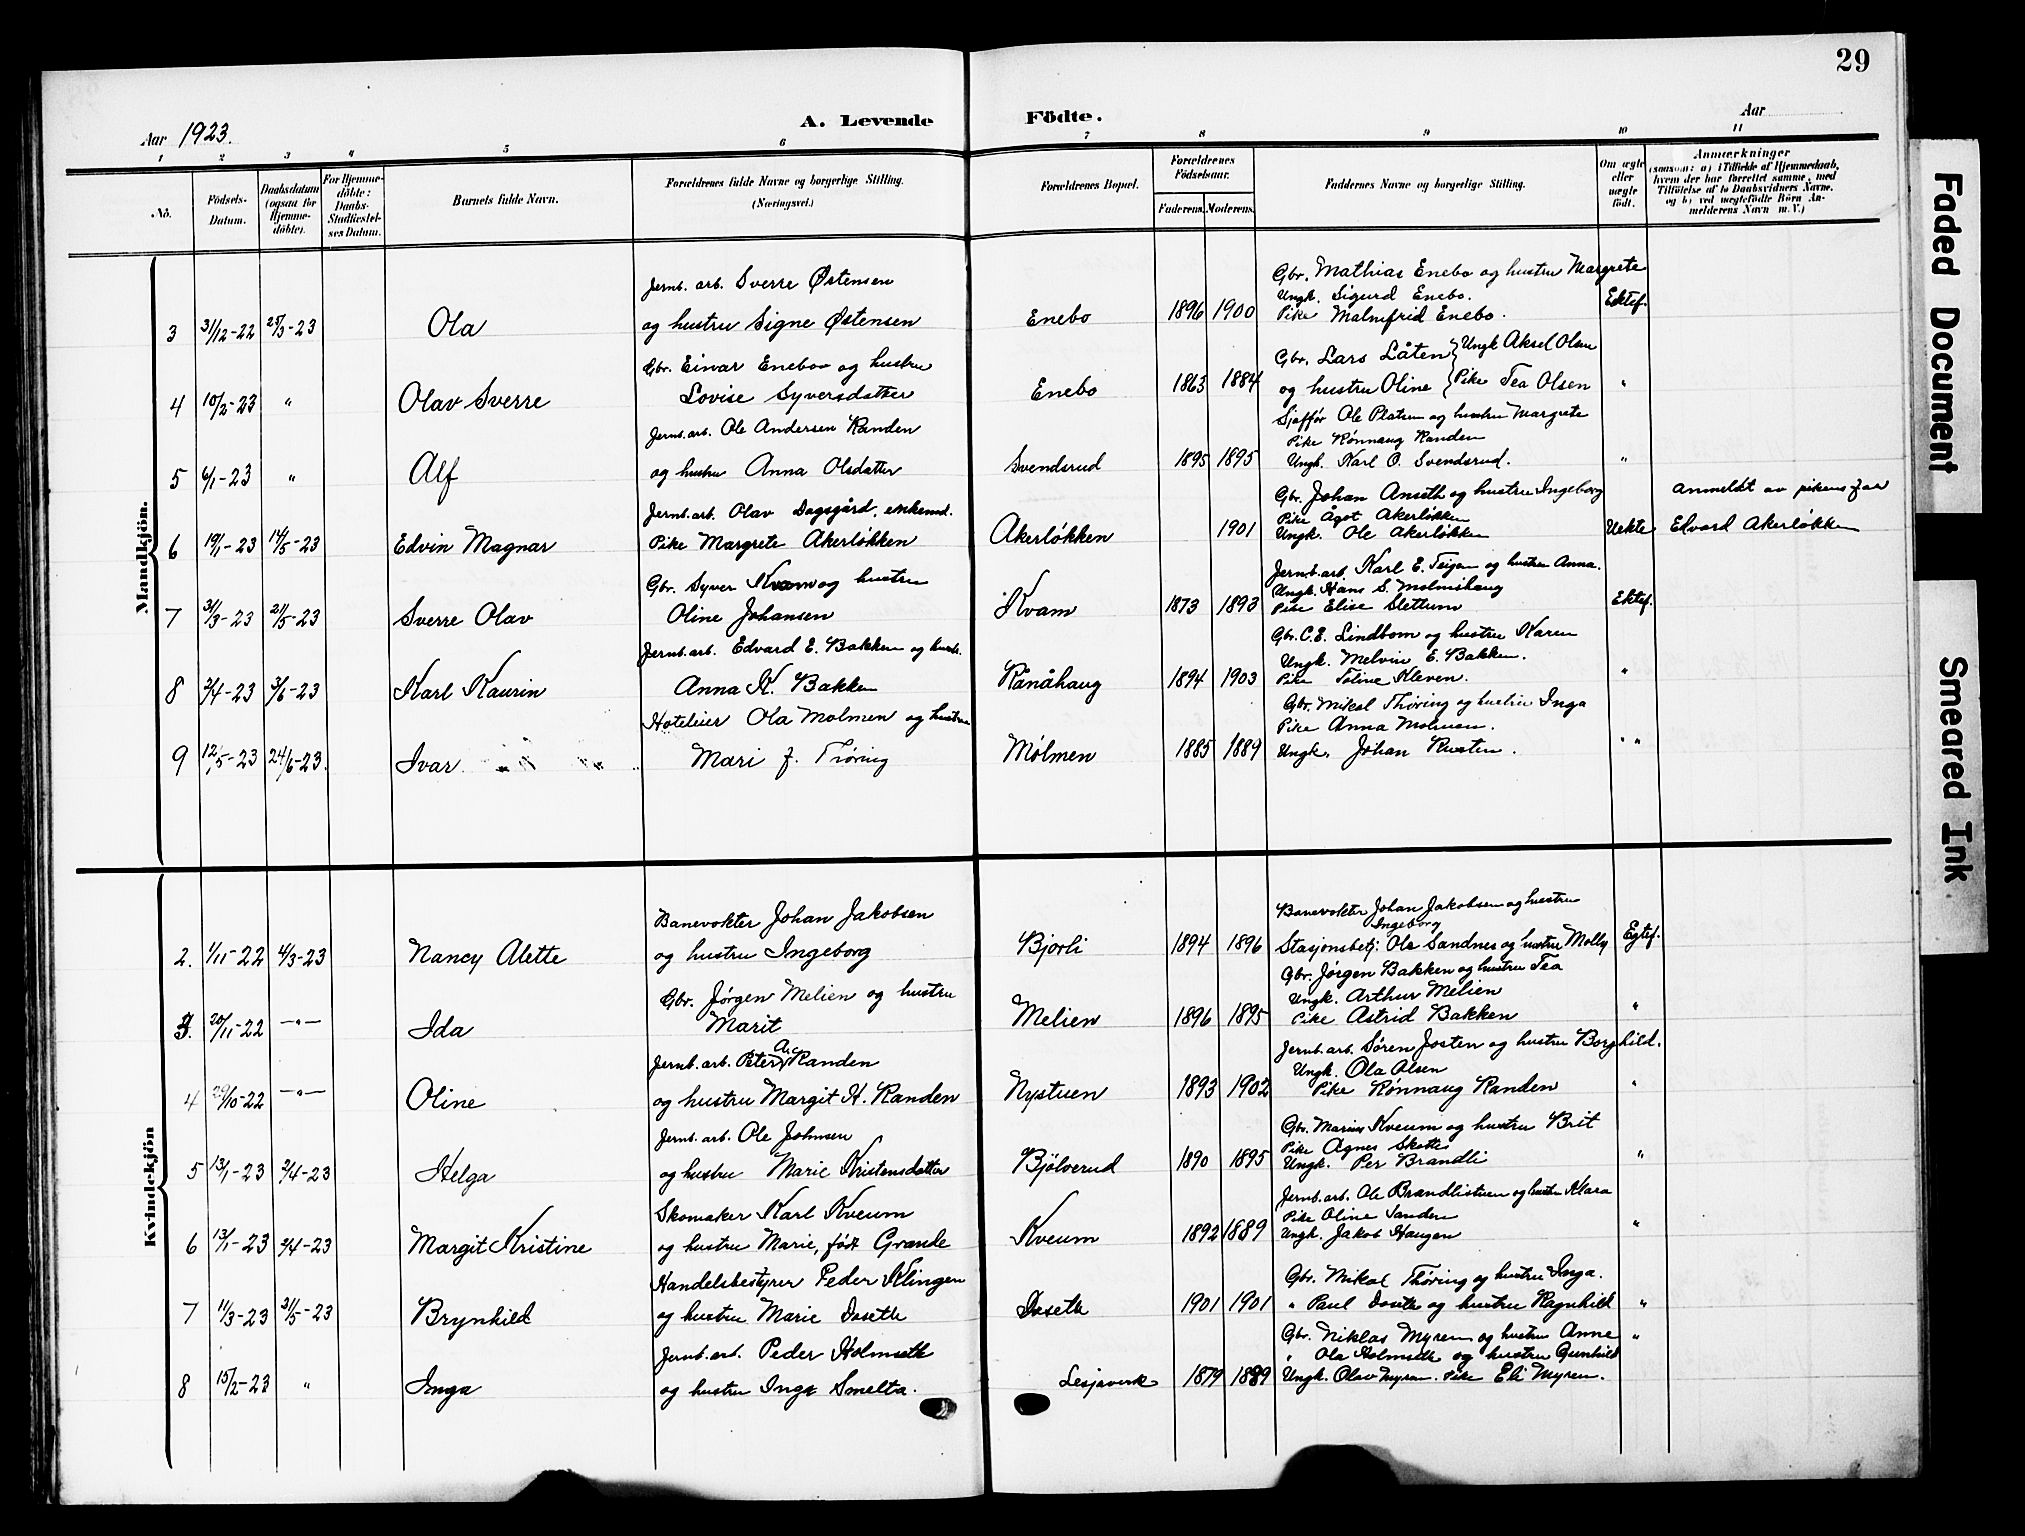 29
Aar 1923.
A. Levende Födte.
Aar
1 2 3 4 5 6 7 8 9 10 11
No.
Födsels-Datum.
Daabsdatum (ogsaa for Hjemme-döbte).
For Hjemme-döbte: Daabs-Stadfæstel-ses Datum.
Barnets fulde Navn.
Forældrenes fulde Navne og borgerlige Stilling. (Næringsvei.)
Forældrenes Bopæl.
Forældrenes Födselsaar.
Faderens. Moderens.
Faddernes Navne og borgerlige Stilling.
Om ægte eller uægte födt.
Anmærkninger
(saasom: a) i Tilfælde af Hjemmedaab, hvem der har forrettet samme, med Tilföielse af to Daabsvidners Navne, og b) ved uægtefödte Börn An-melderens Navn m. V.)
Mandkjön.
Jernb. arb. Sverre Østensen
Gbr. Mathias Enebo og hustru Margrete
Ungk. Sigurd Enebo.
3 31/12-22 25/3-23 Ola og hustru Signe Østensen Enebo 1896 1900 Pike Malmfrid Enebo. Ektef.
Gbr. Einar Eneboe og hustru
Gbr. Lars Låten Ungk Aksel Olsen
4 10/2-23 " Olav Sverre Lovise Syversdatter Enebo 1863 1884 og hustru Oline Pike Tea Olsen "
Jernb. arb. Ole Andersen Randen
Sjåffør Ole Platum og hustru Margrete
Pike Rønnaug Randen
5 6/1-23 " Alf og hustru Anna Olsdatter Svendsrud 1895 1895 Ungk. Karl O. Svendsrud. "
Jernb. arb. Olav Dagsgård, enkemd.
Gbr. Johan Anseth og hustru Ingeborg anmeldt av pikens far
Pike Ågot Akerløkken
6 19/1-23 14/5-23 Edvin Magnar Pike Margrete Akerløkken Akerløkken 1901 Ungk. Ole Akerløkken Uekte Edvard Akerløkken
Gbr. Syver Kvam og hustru
Jernb. arb. Karl E. Teigen og hustru Anna.
Ungk. Hans S. Molmshaug
7 31/3-23 21/5-23 Sverre Olav Oline Johansen Kvam 1873 1893 Pike Elise Slettum Ektef.
Jernb. arb. Edvard E. Bakken og hustr.
Gbr. C.E. Lindbom og hustru Karen
Ungk. Melvin E. Bakken.
8 2/4-23 3/6-23 Karl Kaurin Anna K. Bakken Rånåhaug 1894 1903 Pike Toline Kleven. "
Hoteleier Ola Molmen og hustru
Gbr. Mikal Thøring og hustru Inga
Pike Anna Molmen.
9 12/5-23 24/6-23. Ivar Mari f. Trøring Mølmen 1885 1889 Ungk. Johan Rusten. " "
Kvindekjön
Banevokter Johan Jakobsen
Banevokter Johan Jakobsen og hustru
Ingeborg
2. 1/11-22 4/3-23 Nancy Alette og hustru Ingeborg Bjorli 1894 1896 Stasjonsbetj. Ole Sandnes og hustru Molly Egtef.
Gbr. Jørgen Melien og hustru
Gbr. Jørgen Bakken og hustru Tea
Ungk. Arthur Melien
3. 20/11-22 —"— Ida Marit Melien 1896 1895 Pike Astrid Bakken "
Jernb. arb. Peter And. Randen
Jernb. arb. Søren Josten og hustru Borghild.
Ungk. Ola Olsen
4 29/10-22 —"— Oline og hustru Margit H. Randen Nystuen 1893 1902 Pike Rønnaug Randen "
Jernb. arb. Ole Johnsen
Gbr. Marius Kveum og hustru Brit
Pike Agnes Skotte
5 13/1-23 2/4-23 Helga og hustru Marie Kristensdatter Bjölverud 1890 1895 Ungk. Per Brandli "
Skomaker Karl Kveum
Jernb. arb. Ole Brandlistuen og hustru Klara
Pike Oline Sanden
6 13/1-23 2/4-23 Margit Kristine og hustru Marie, født Grande Kveum 1892 1889 Ungk. Jakob Haugen "
Handelsbestyrer Peder Klingen
Gbr. Mikal Thøring og hustru Inga.
7 11/3-23 21/5-23 Brynhild og hustru Marie Doseth Doseth 1901 1901 " Paul Doseth og hustru Ragnhild "
Jernb. arb. Peder Holmseth
Gbr. Niklas Myren og hustru Anne "
" Ola Holmseth og hustru Gunhild
8 15/2-23 " Inga og hustru Inga Smelta. Lesjaverk 1879 1889 Ungk. Olav Myren. Pike Eli Myren.
Faded Document
Smeared Ink